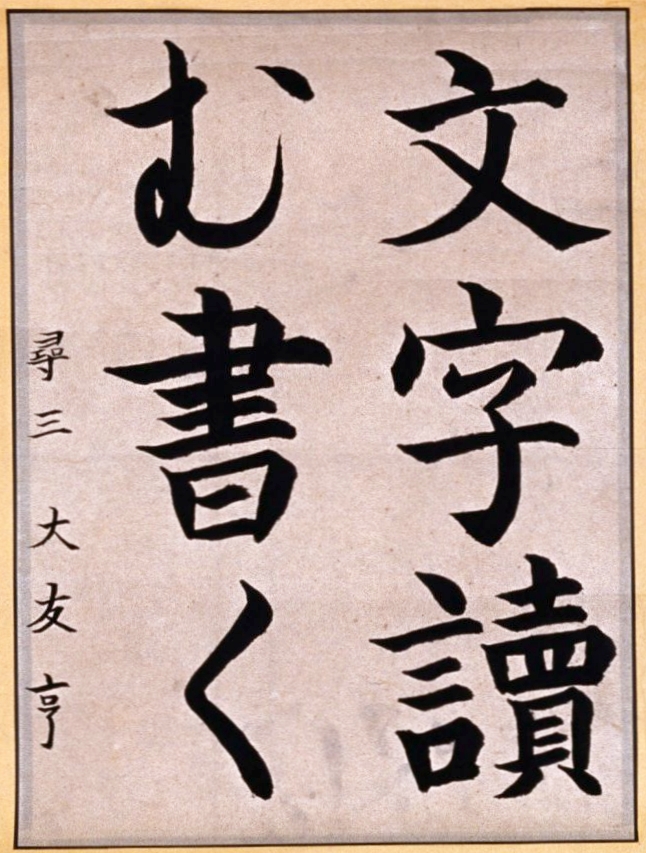 文字讀
む書く
尋三 大友亨